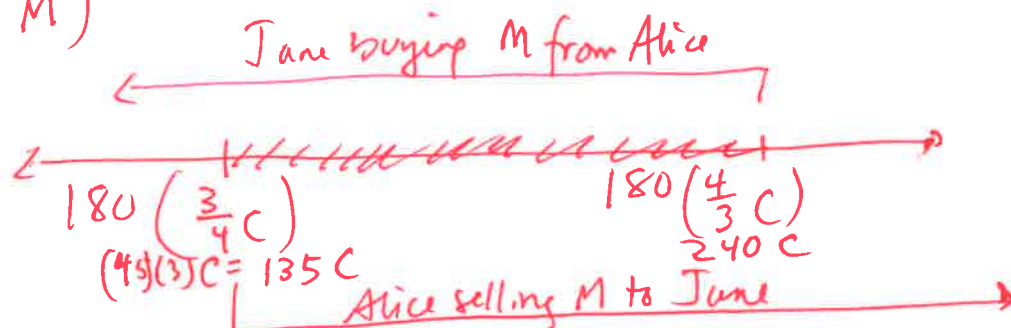 M)
Jane buying M from Alice
180 (3/4 C)
180 (4/3 C)
(45)(3)C = 135 C
240 C
Alice selling M to Jane